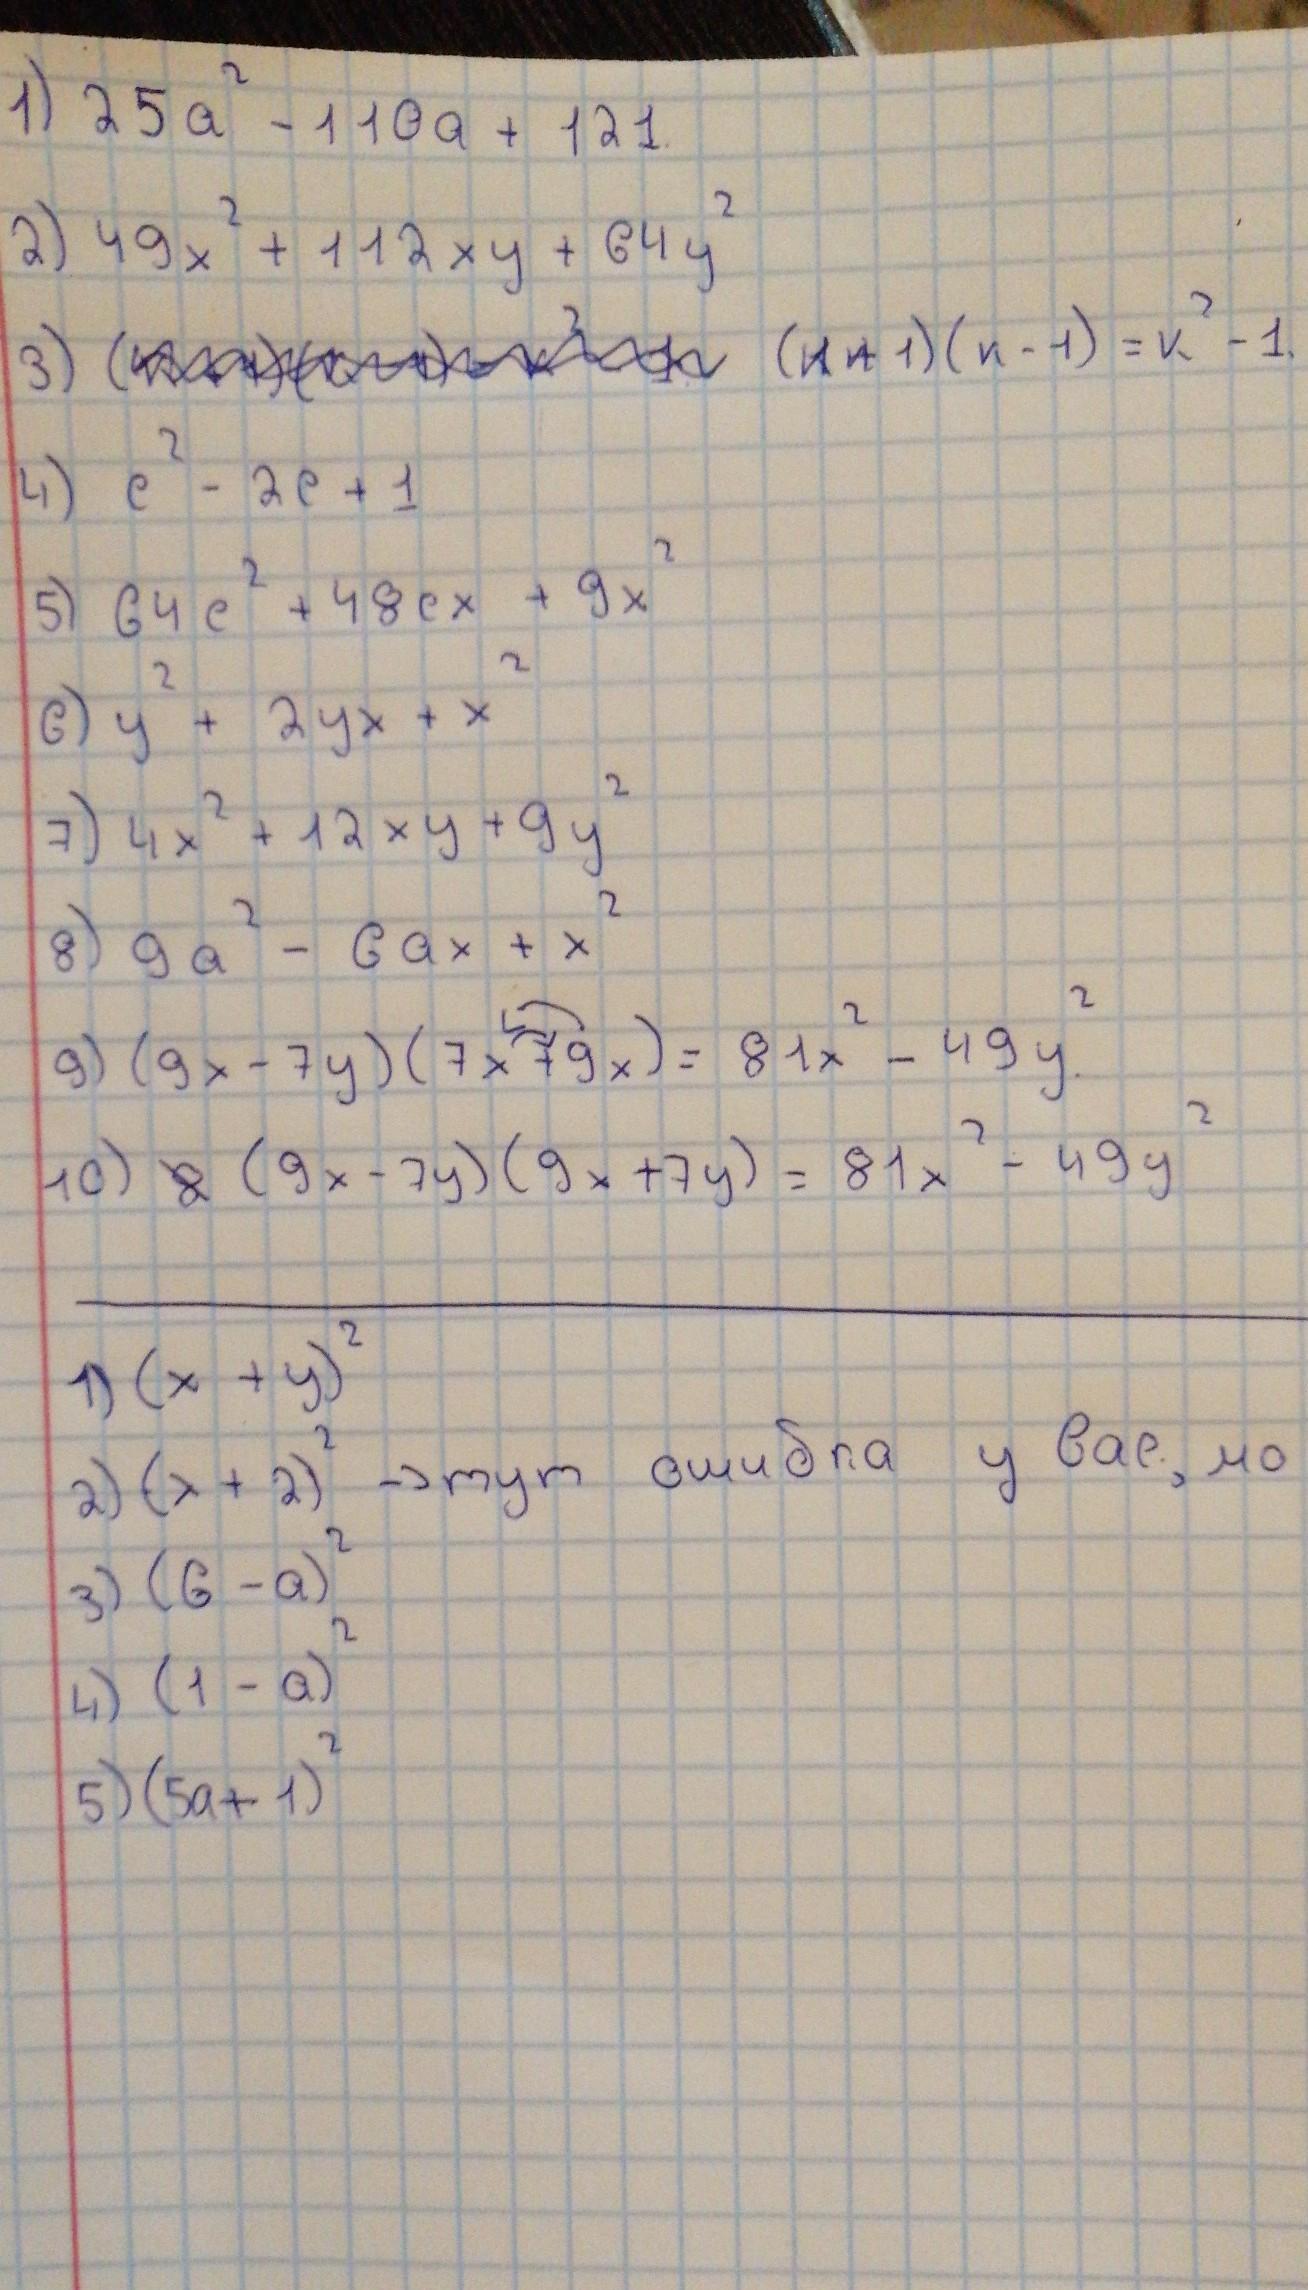 1) 25a² - 110a + 121.
2) 49x² + 112xy + 64y²
3) (к+1)(к-1) = к² - 1.
4) c² - 2c + 1
5) 64c² + 48cx + 9x²
6) y² + 2yx + x²
7) 4x² + 12xy + 9y²
8) 9a² - 6ax + x²
9) (9x - 7y)(7x 79x) = 81x² - 49y².
10) (9x - 7y)(9x + 7y) = 81x² - 49y²
1) (x + y)²
2) (x + 2)² -> тут ошибка у вас, но
3) (6 - a)²
4) (1 - a)²
5) (5a + 1)²